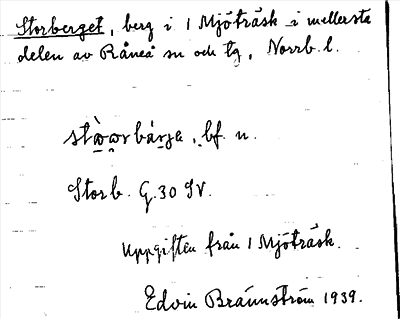 Storberget, berg i 1 Mjöträsk i mellersta
delen av Råneå sn och tg, Norrb. l.
bf. n.
Storb. G. 30 SV.
Uppgiften från 1 Mjöträsk.
Edvin Brännström 1939.